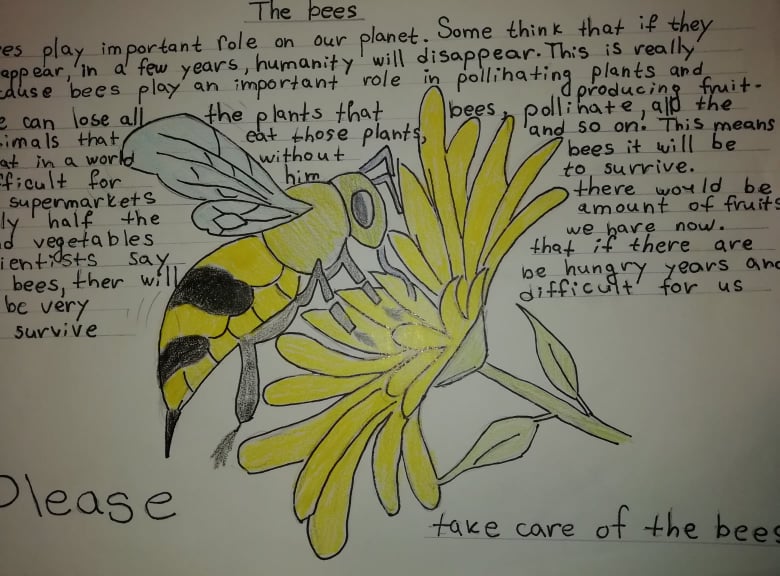 The bees
es play important role on our planet. Some think that if they
appear, in a few years, humanity will disappear. This is really
cause bees play an important role in pollihating plants and
producing fruit-
e can lose all the plants that bees, pollihate, all the
imals that eat those plants, and so on. This means
at in a world without bees it will be
ficult for him to survive.
supermarkets there would be
ly half the amount of fruits
d vegetables we have now.
ientists say that if there are
bees, ther will be hungry years and
be very difficult for us
survive
Please
take care of the bees